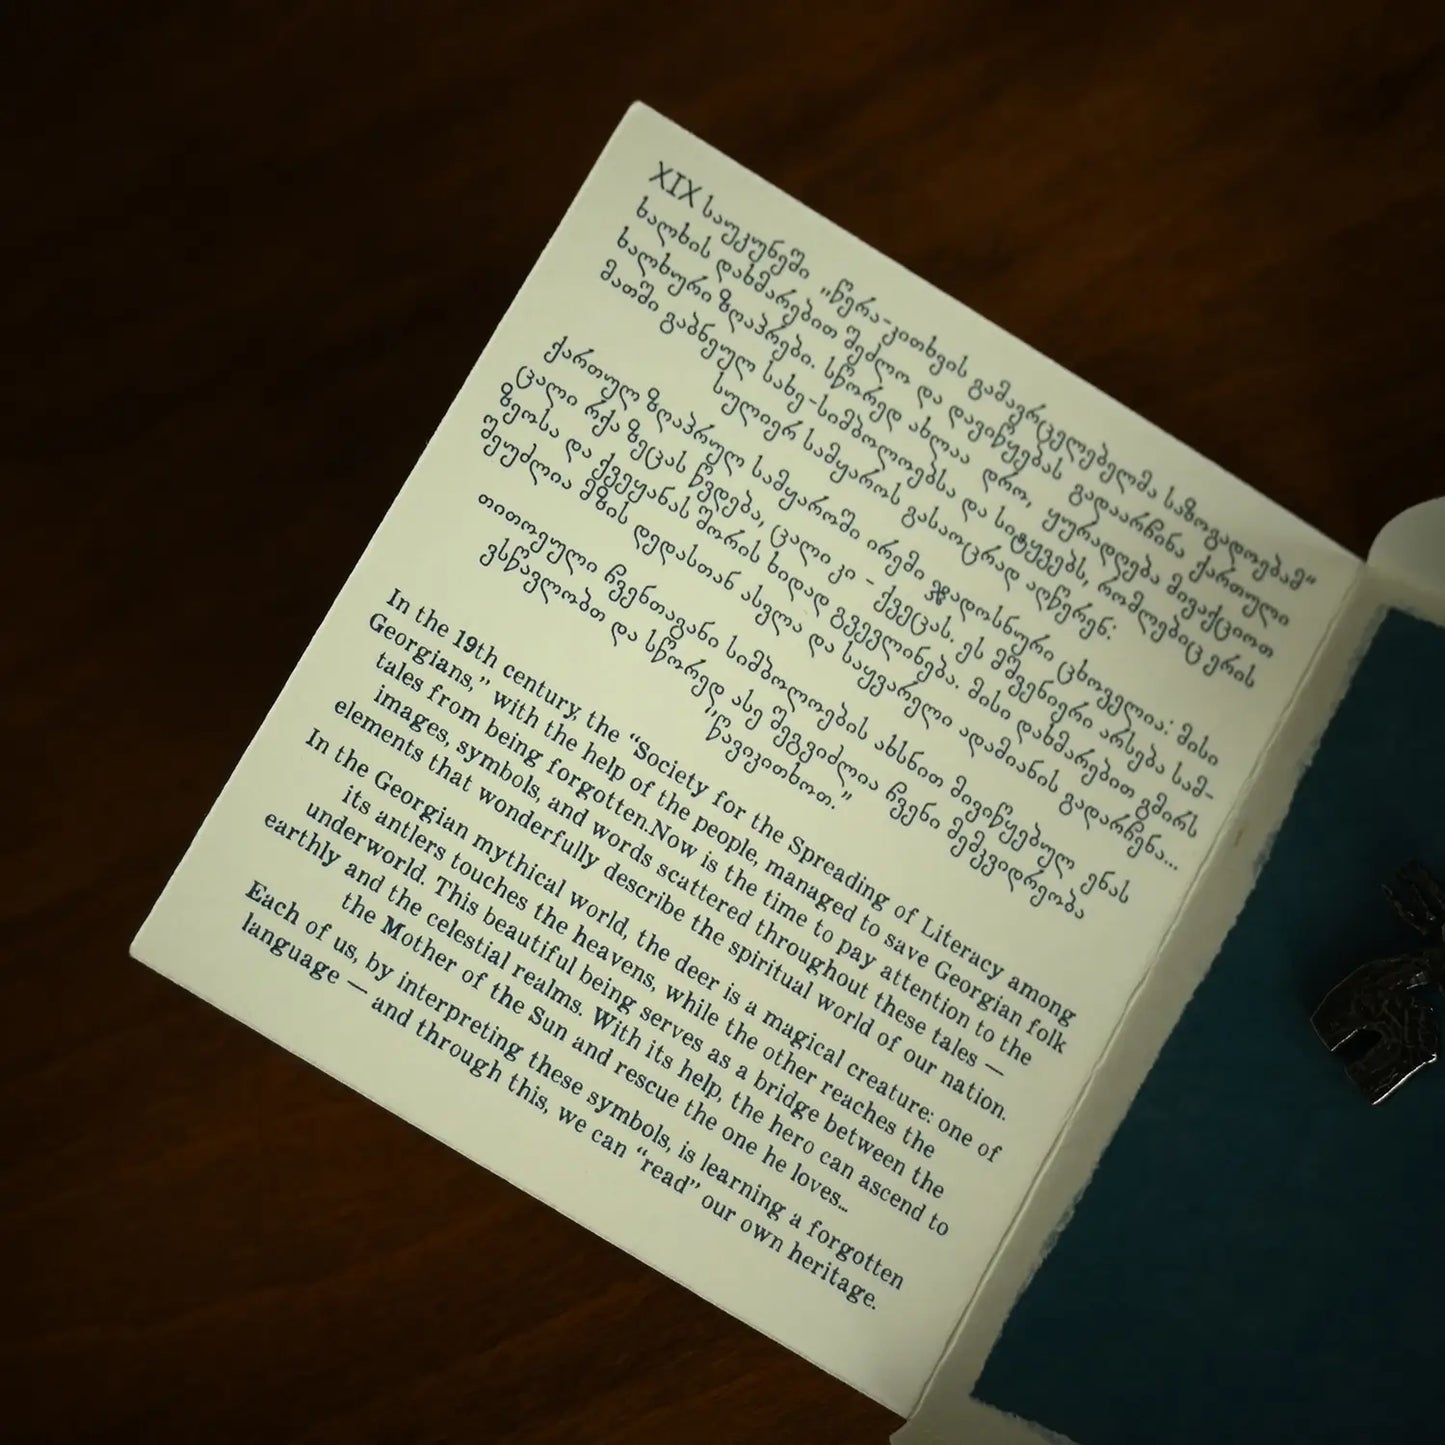 XIX საუკუნეში "წერა-კითხვის გამავრცელებელმა საზოგადოებამ"
ხალხის დახმარებით შეძლო და დავიწყებას გადაარჩინა ქართული
ხალხური ზღაპრები. სწორედ ახლაა დრო, ყურადღება მივაქციოთ
მათში გაბნეულ სახე-სიმბოლოებსა და სიტყვებს, რომლებიც ერის
სულიერ სამყაროს გასაოცრად აღწერენ:
ქართულ ზღაპრულ სამყაროში ირემი ჯადოსნური ცხოველია: მისი
ცალი რქა ზეცას წვდება, ცალი კი - ქვეცას. ეს მშვენიერი არსება სამ-
ზეოსა და ქვეყანას შორის ხიდად გვევლინება. მისი დახმარებით გმირს
შეუძლია მზის დედასთან ასვლა და საყვარელი ადამიანის გადარჩენა...
თითოეული ჩვენთაგანი სიმბოლოების ახსნით მივიწყებულ ენას
ვსწავლობთ და სწორედ ასე შეგვიძლია ჩვენი მემკვიდრეობა
"წავიკითხოთ."
In the 19th century, the "Society for the Spreading of Literacy among
Georgians," with the help of the people, managed to save Georgian folk
tales from being forgotten.Now is the time to pay attention to the
images, symbols, and words scattered throughout these tales —
elements that wonderfully describe the spiritual world of our nation.
In the Georgian mythical world, the deer is a magical creature: one of
its antlers touches the heavens, while the other reaches the
underworld. This beautiful being serves as a bridge between the
earthly and the celestial realms. With its help, the hero can ascend to
the Mother of the Sun and rescue the one he loves...
Each of us, by interpreting these symbols, is learning a forgotten
language — and through this, we can "read" our own heritage.